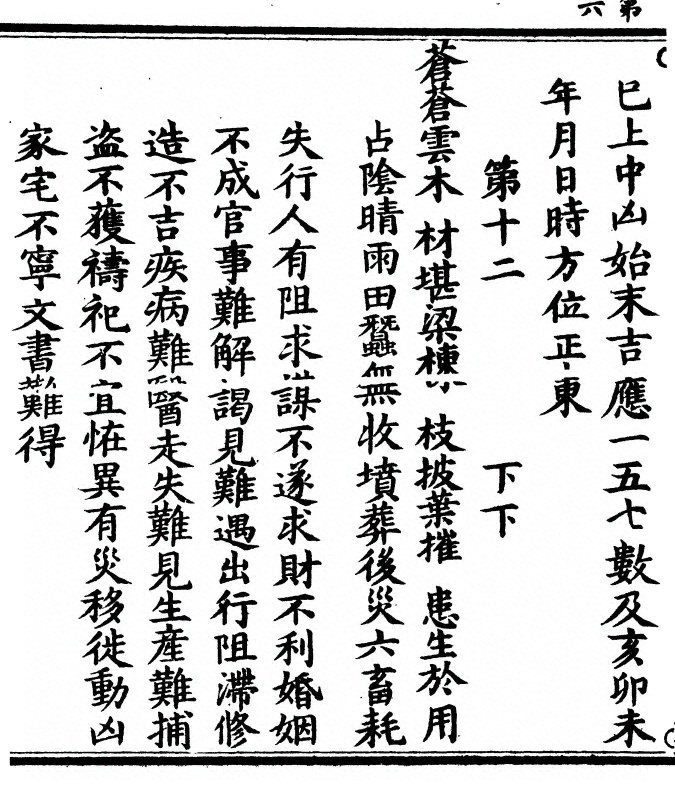 第六
巳上中凶始末吉應一五七數及亥卯未
年月日時方位正東
第十二 下下
蒼蒼雲木 材堪梁棟 枝披葉摧 患生於用
占陰晴雨田蠶無收墳葬後災六畜耗
失行人有阻求謀不遂求財不利婚姻
不成官事難解謁見難遇出行阻滯修
造不吉疾病難醫走失難見生産難捕
盗不獲禱祀不宜恠異有災移徙動凶
家宅不寧文書難得